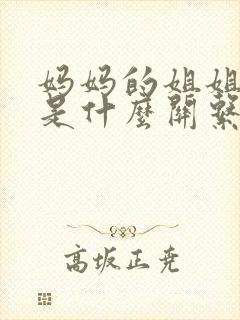 妈妈的姐姐
是什麼關繫
高坂正尧